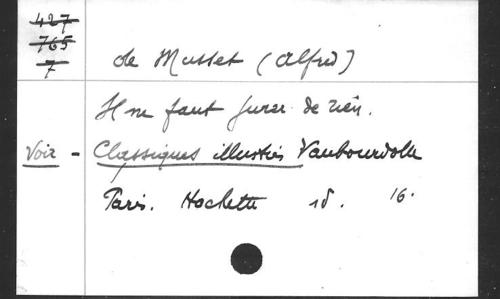 427
765
7
de Musset (Alfred)
Il ne faut jurer de rien.
Voir - Classiques illustrés Vaubourdolle
Paris. Hachette in 16.